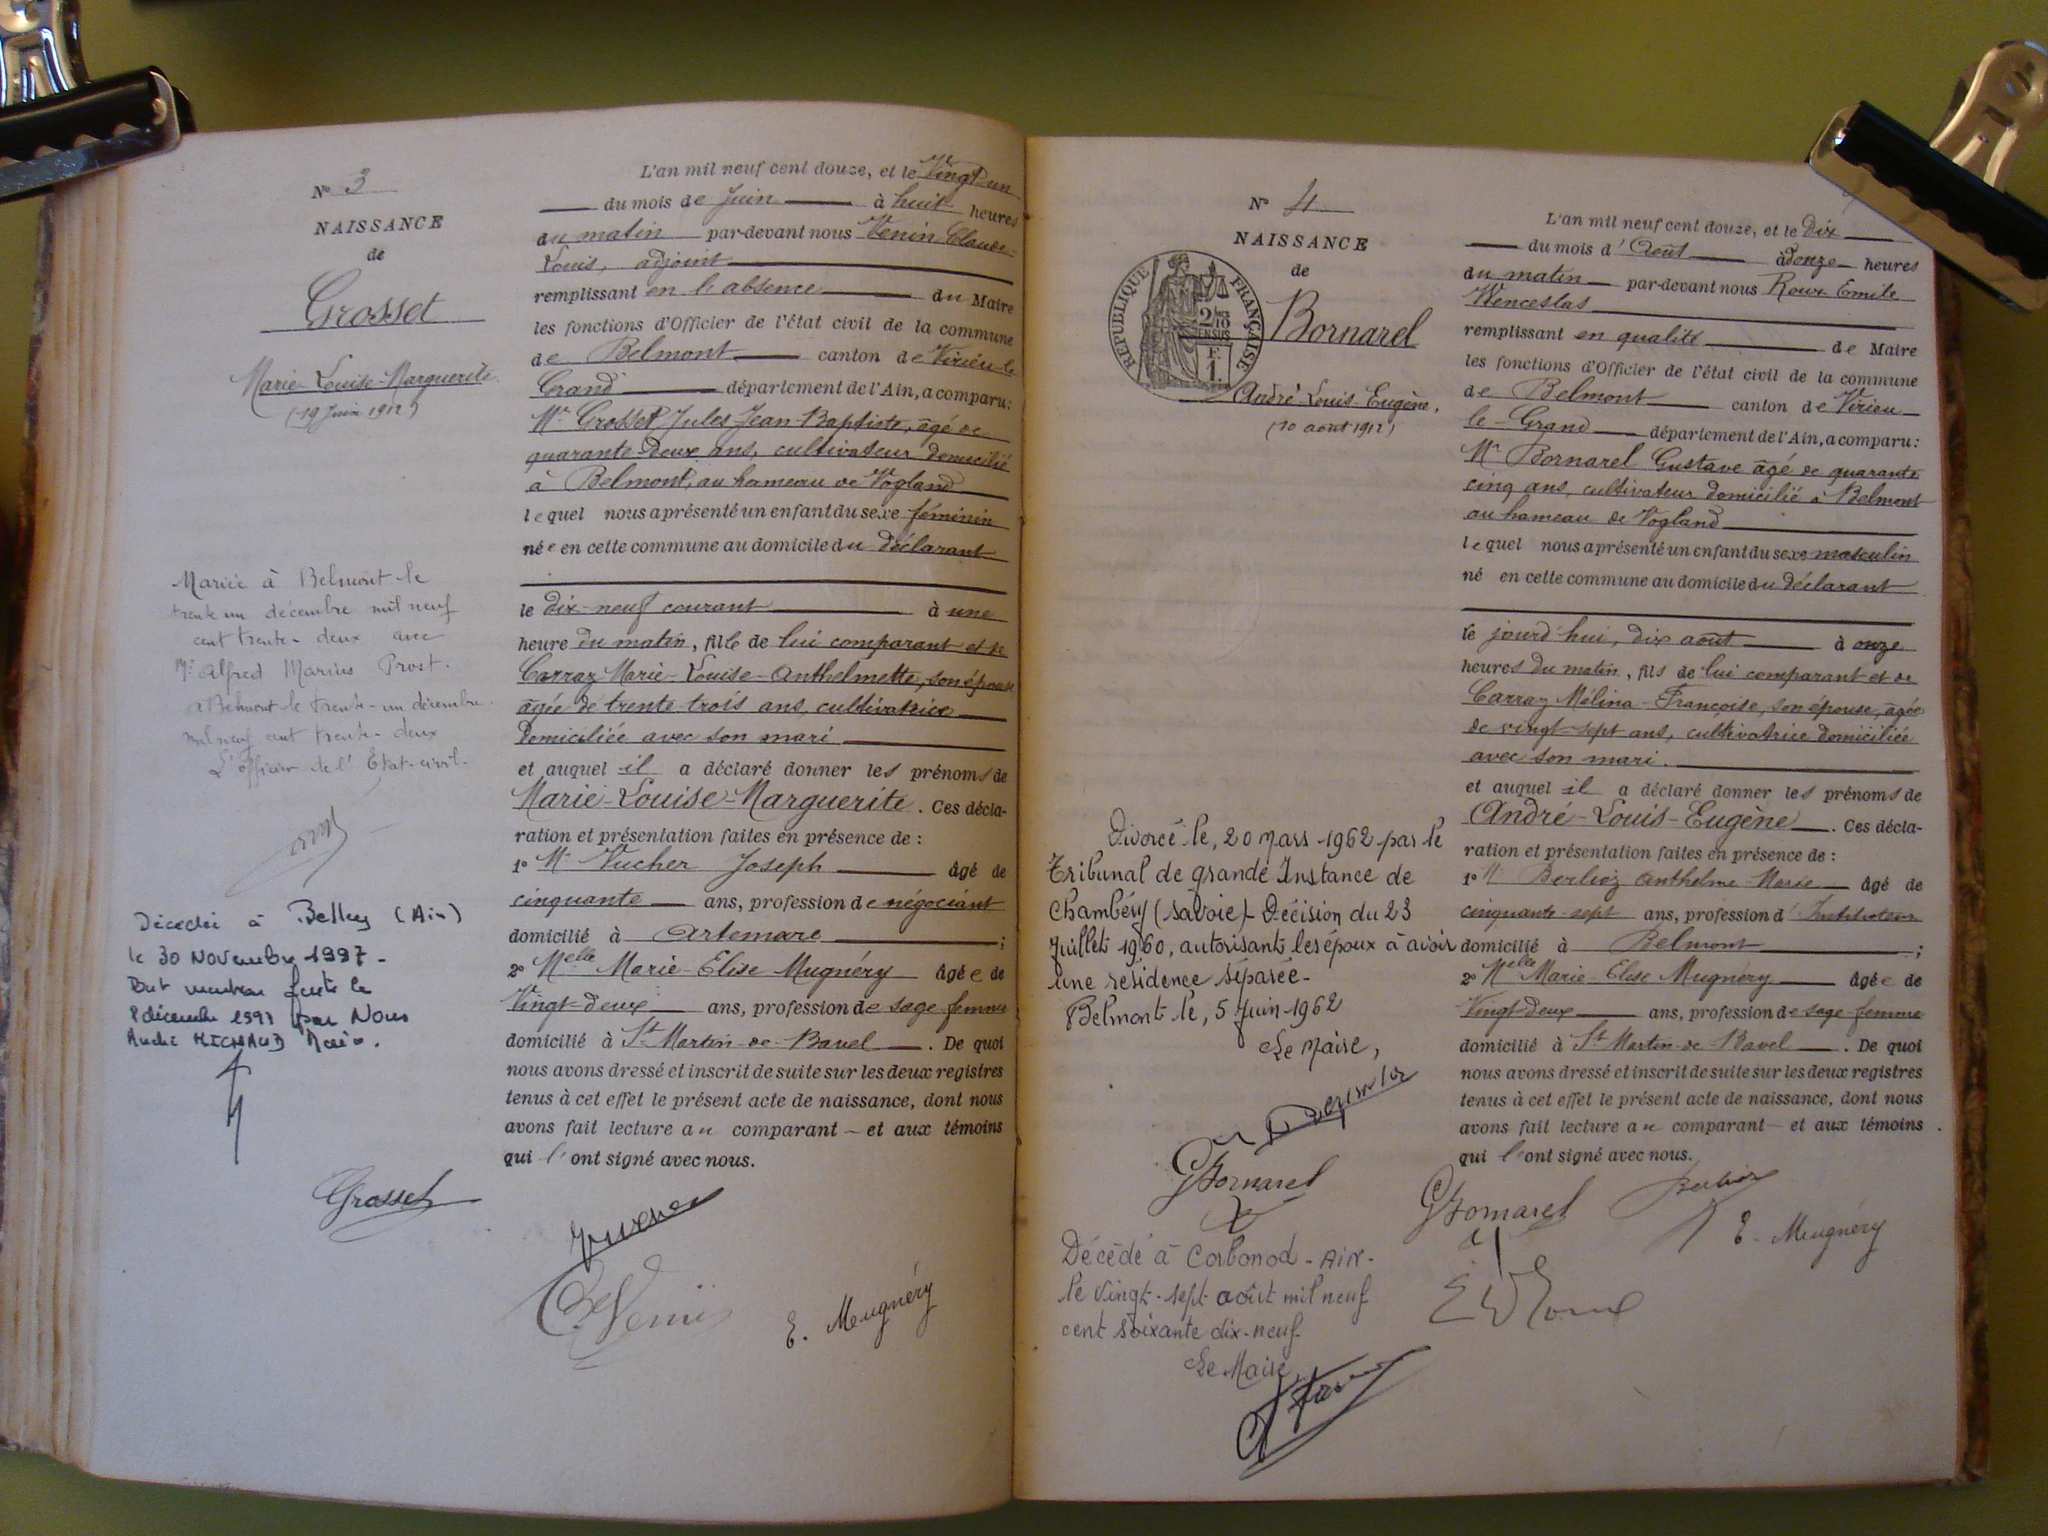 N° 3
NAISSANCE
de
Grosset
Marie-Louise-Marguerite
(19 Juin 1912)
Mariée à Belmont le
trente un décembre mil neuf
cent trente-deux avec
Mr Alfred Marius Prost.
à Belmont le trente-un décembre
mil neuf cent trente-deux
L'Officier de l'Etat-civil.
Décédée à Belley (Ain)
le 30 Novembre 1997 -
Dont mention faite le
8 décembre 1997 par Nous
André MICHAUD Maire.
Grosset
L'an mil neuf cent douze, et le Vingt un
du mois de Juin à huit heures
du matin par-devant nous Venin Claude-
Louis, adjoint
remplissant en l'absence du Maire
les fonctions d'Officier de l'état civil de la commune
de Belmont canton de Virieu-le
Grand département de l'Ain, a comparu:
Mr Grosset Jules Jean-Baptiste, âgé de
quarante-deux ans, cultivateur domicilié
à Belmont, au hameau de Vogland
lequel nous a présenté un enfant du sexe féminin
née en cette commune au domicile du déclarant
le dix-neuf courant à une
heure du matin, fille de lui comparant et de
Carraz Marie-Louise-Anthelmette, son épouse
âgée de trente trois ans, cultivatrice
domiciliée avec son mari
et auquel il a déclaré donner les prénoms de
Marie-Louise-Marguerite. Ces décla-
ration et présentation faites en présence de :
1° Mr Vucher Joseph âgé de
cinquante ans, profession de négociant
domicilié à Artemare ;
2° Melle Marie-Elise Mugnéry âgée de
Vingt-deux ans, profession de sage femme
domicilié à St Martin-de-Bavel. De quoi
nous avons dressé et inscrit de suite sur les deux registres
tenus à cet effet le présent acte de naissance, dont nous
avons fait lecture au comparant - et aux témoins
qui l'ont signé avec nous.
Ce Venin
E. Mugnéry
N° 4
NAISSANCE
de
RÉPUBLIQUE FRANÇAISE
Bornarel
André-Louis-Eugène,
(10 août 1912)
Divorcé le, 20 mars 1962 par le
Tribunal de grande Instance de
Chambéry (Savoie) - Décision du 23
Juillet 1960, autorisant les époux à avoir
une résidence séparée -
Belmont le, 5 Juin 1962
Le Maire,
GBornarel
Décédé à Corbonod - AIN -
le vingt-sept août mil neuf
cent soixante dix-neuf
Le Maire,
L'an mil neuf cent douze, et le Dix
du mois d'Août à onze heures
du matin par-devant nous Roux Emile
Wenceslas
remplissant en qualité de Maire
les fonctions d'Officier de l'état civil de la commune
de Belmont canton de Virieu
le-Grand département de l'Ain, a comparu:
Mr Bornarel Gustave âgé de quarante
cinq ans, cultivateur domicilié à Belmont
au hameau de Vogland
lequel nous a présenté un enfant du sexe masculin
né en cette commune au domicile du déclarant
le jourd'hui, dix août à onze
heures du matin, fils de lui comparant et de
Carraz Mélina-Françoise, son épouse, âgée
de vingt-sept ans, cultivatrice domiciliée
avec son mari.
et auquel il a déclaré donner les prénoms de
André-Louis-Eugène. Ces décla-
ration et présentation faites en présence de :
1° Mr Berlioz Anthelme-Marie âgé de
cinquante-sept ans, profession d'Instituteur
domicilié à Belmont ;
2° Melle Marie-Elise Mugnéry âgée de
Vingt-deux ans, profession de sage-femme
domicilié à St Martin-de-Bavel. De quoi
nous avons dressé et inscrit de suite sur les deux registres
tenus à cet effet le présent acte de naissance, dont nous
avons fait lecture au comparant - et aux témoins
qui l'ont signé avec nous.
GBornarel
Berlioz
E. Mugnéry
E W Roux